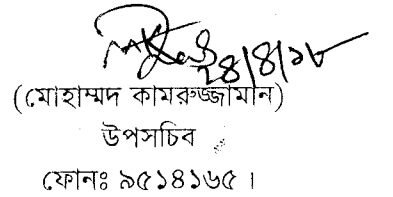 ২৪/৪/১৮
(মোহাম্মদ কামরুজ্জামান)
উপসচিব
ফোনঃ ৯৫১৪১৬৫ ।